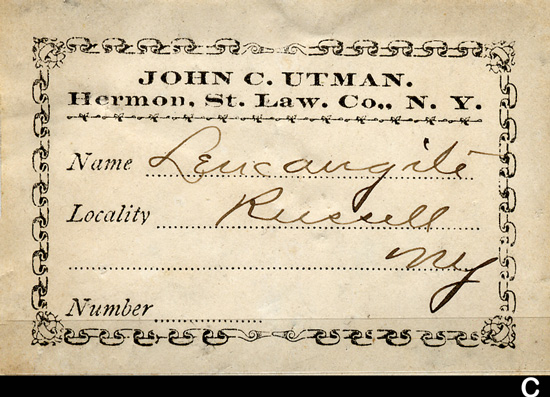 JOHN C. UTMAN.
Hermon, St. Law. Co., N. Y.
Name Leucaugite
Locality Russell
NY
Number
C